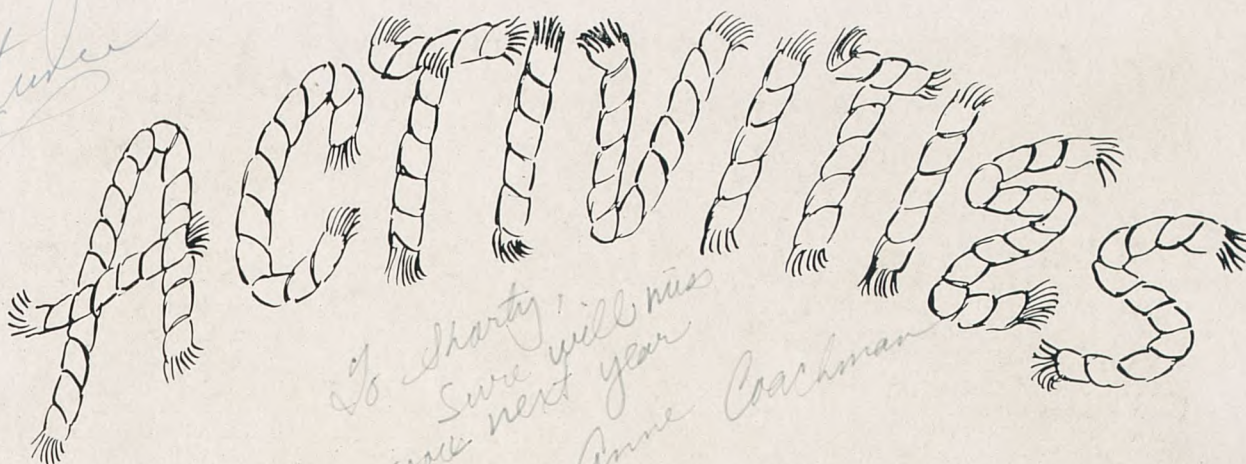 ACTIVITIES
To Shorty,
Sure will miss
you next year
Anne Coachman